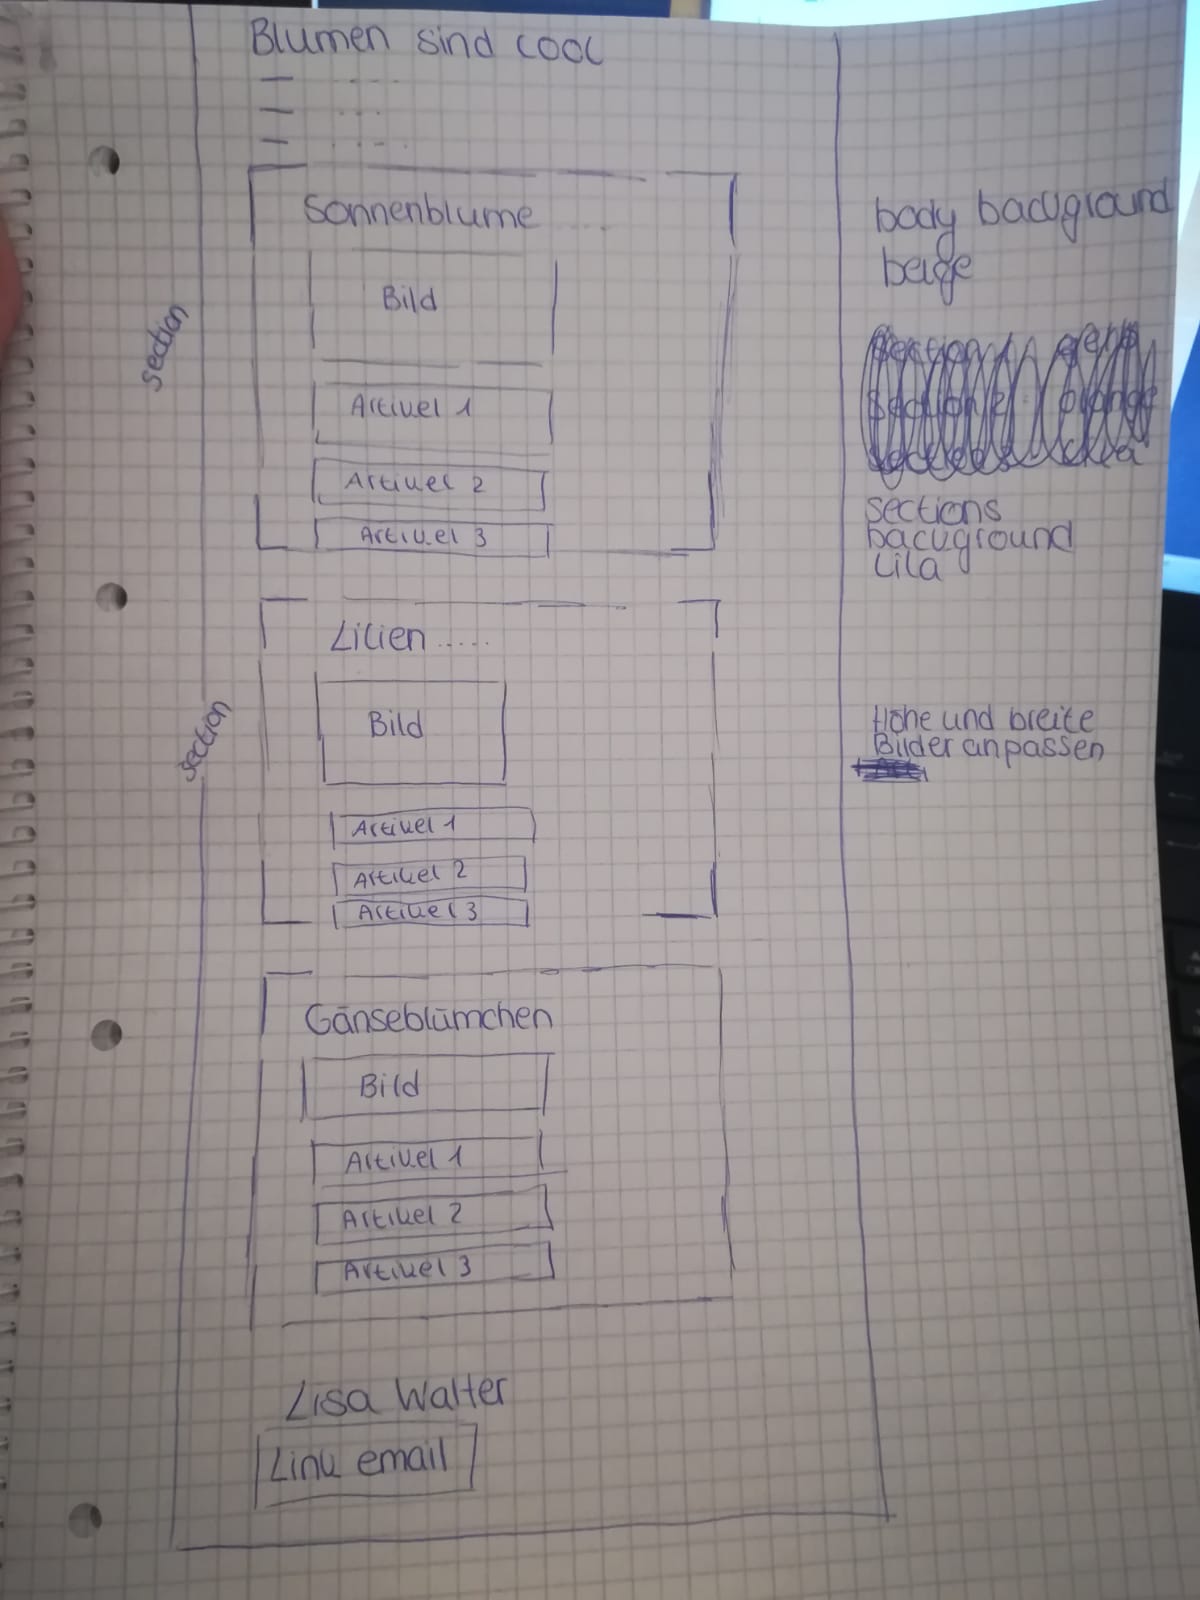 Blumen sind cool
— .....
— ....
— .....
Sonnenblume ....
Bild
Artikel 1
Artikel 2
Artikel 3
section
Lilien .....
Bild
Artikel 1
Artikel 2
Artikel 3
section
Gänseblümchen
Bild
Artikel 1
Artikel 2
Artikel 3
Lisa Walter
Link email
body background
beige
sections
background
Lila
Höhe und breite
Bilder anpassen